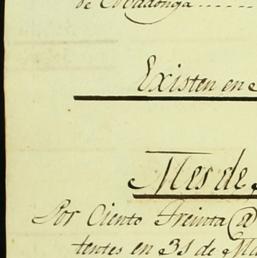 de Covadonga
Existen en
Mes de
Por Ciento treinta
tentes en 31 de